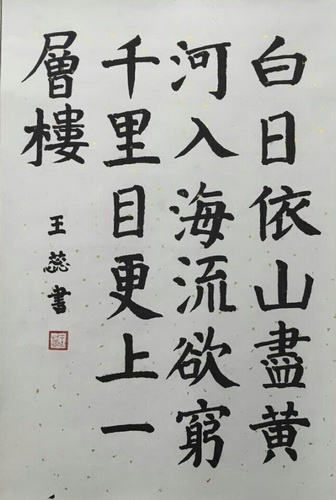 白日依山盡黄
河入海流欲窮
千里目更上一
層樓
王蕊書